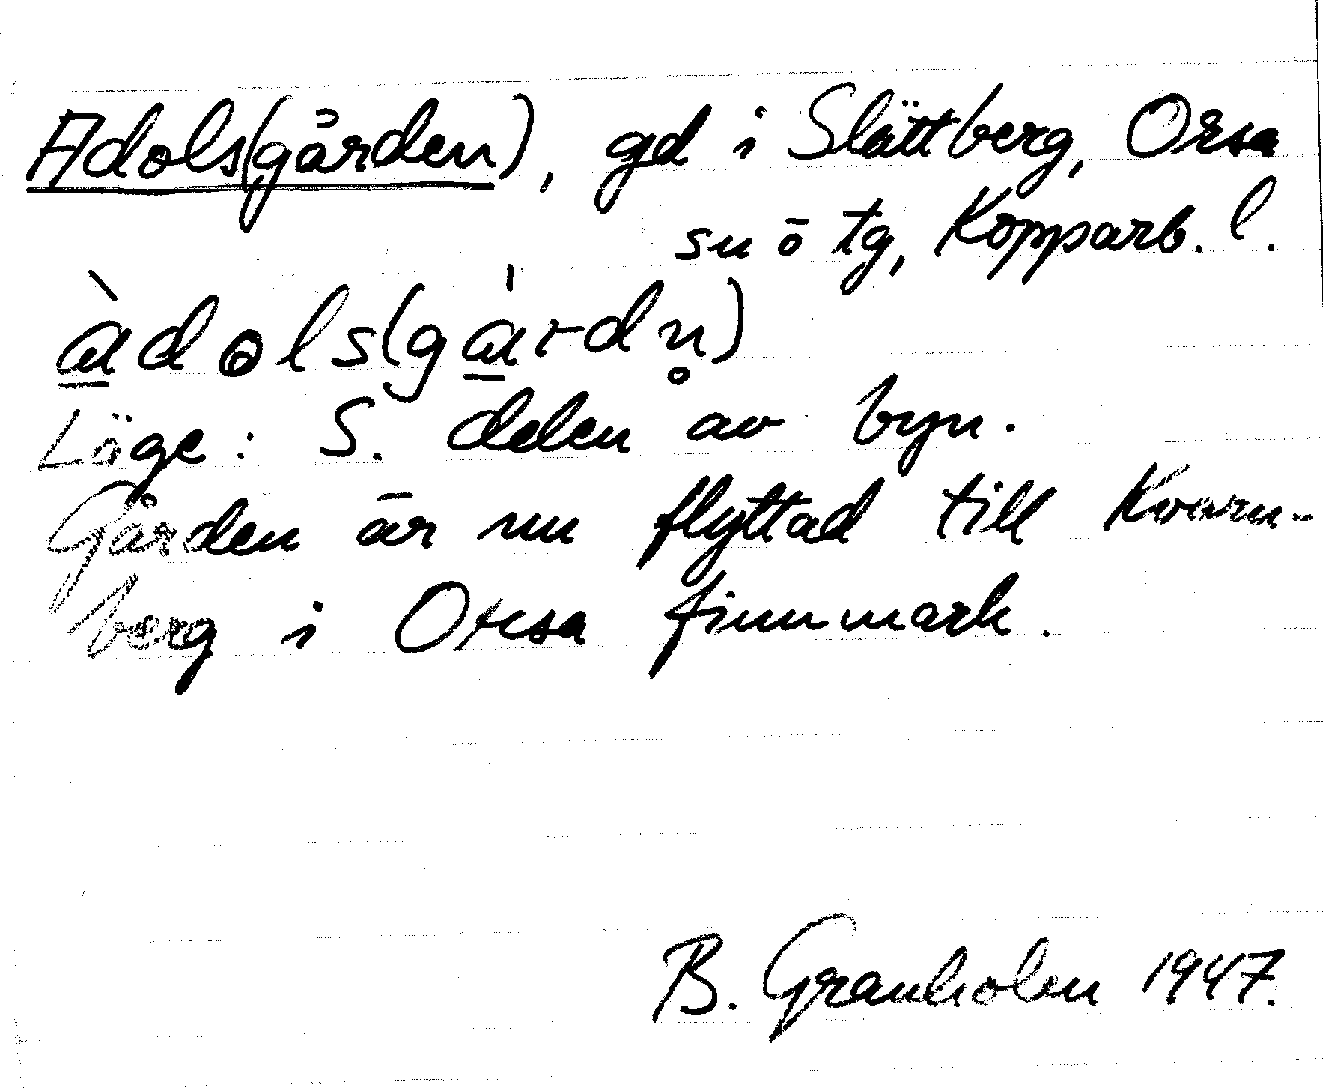 Adols(gården), gd i Slättberg, Orsa
sn ō tg, Kopparb. l.
Läge: S. delen av byn.
Gården är nu flyttad till Kvarn-
berg i Orsa finnmark.
B. Granholm 1947.